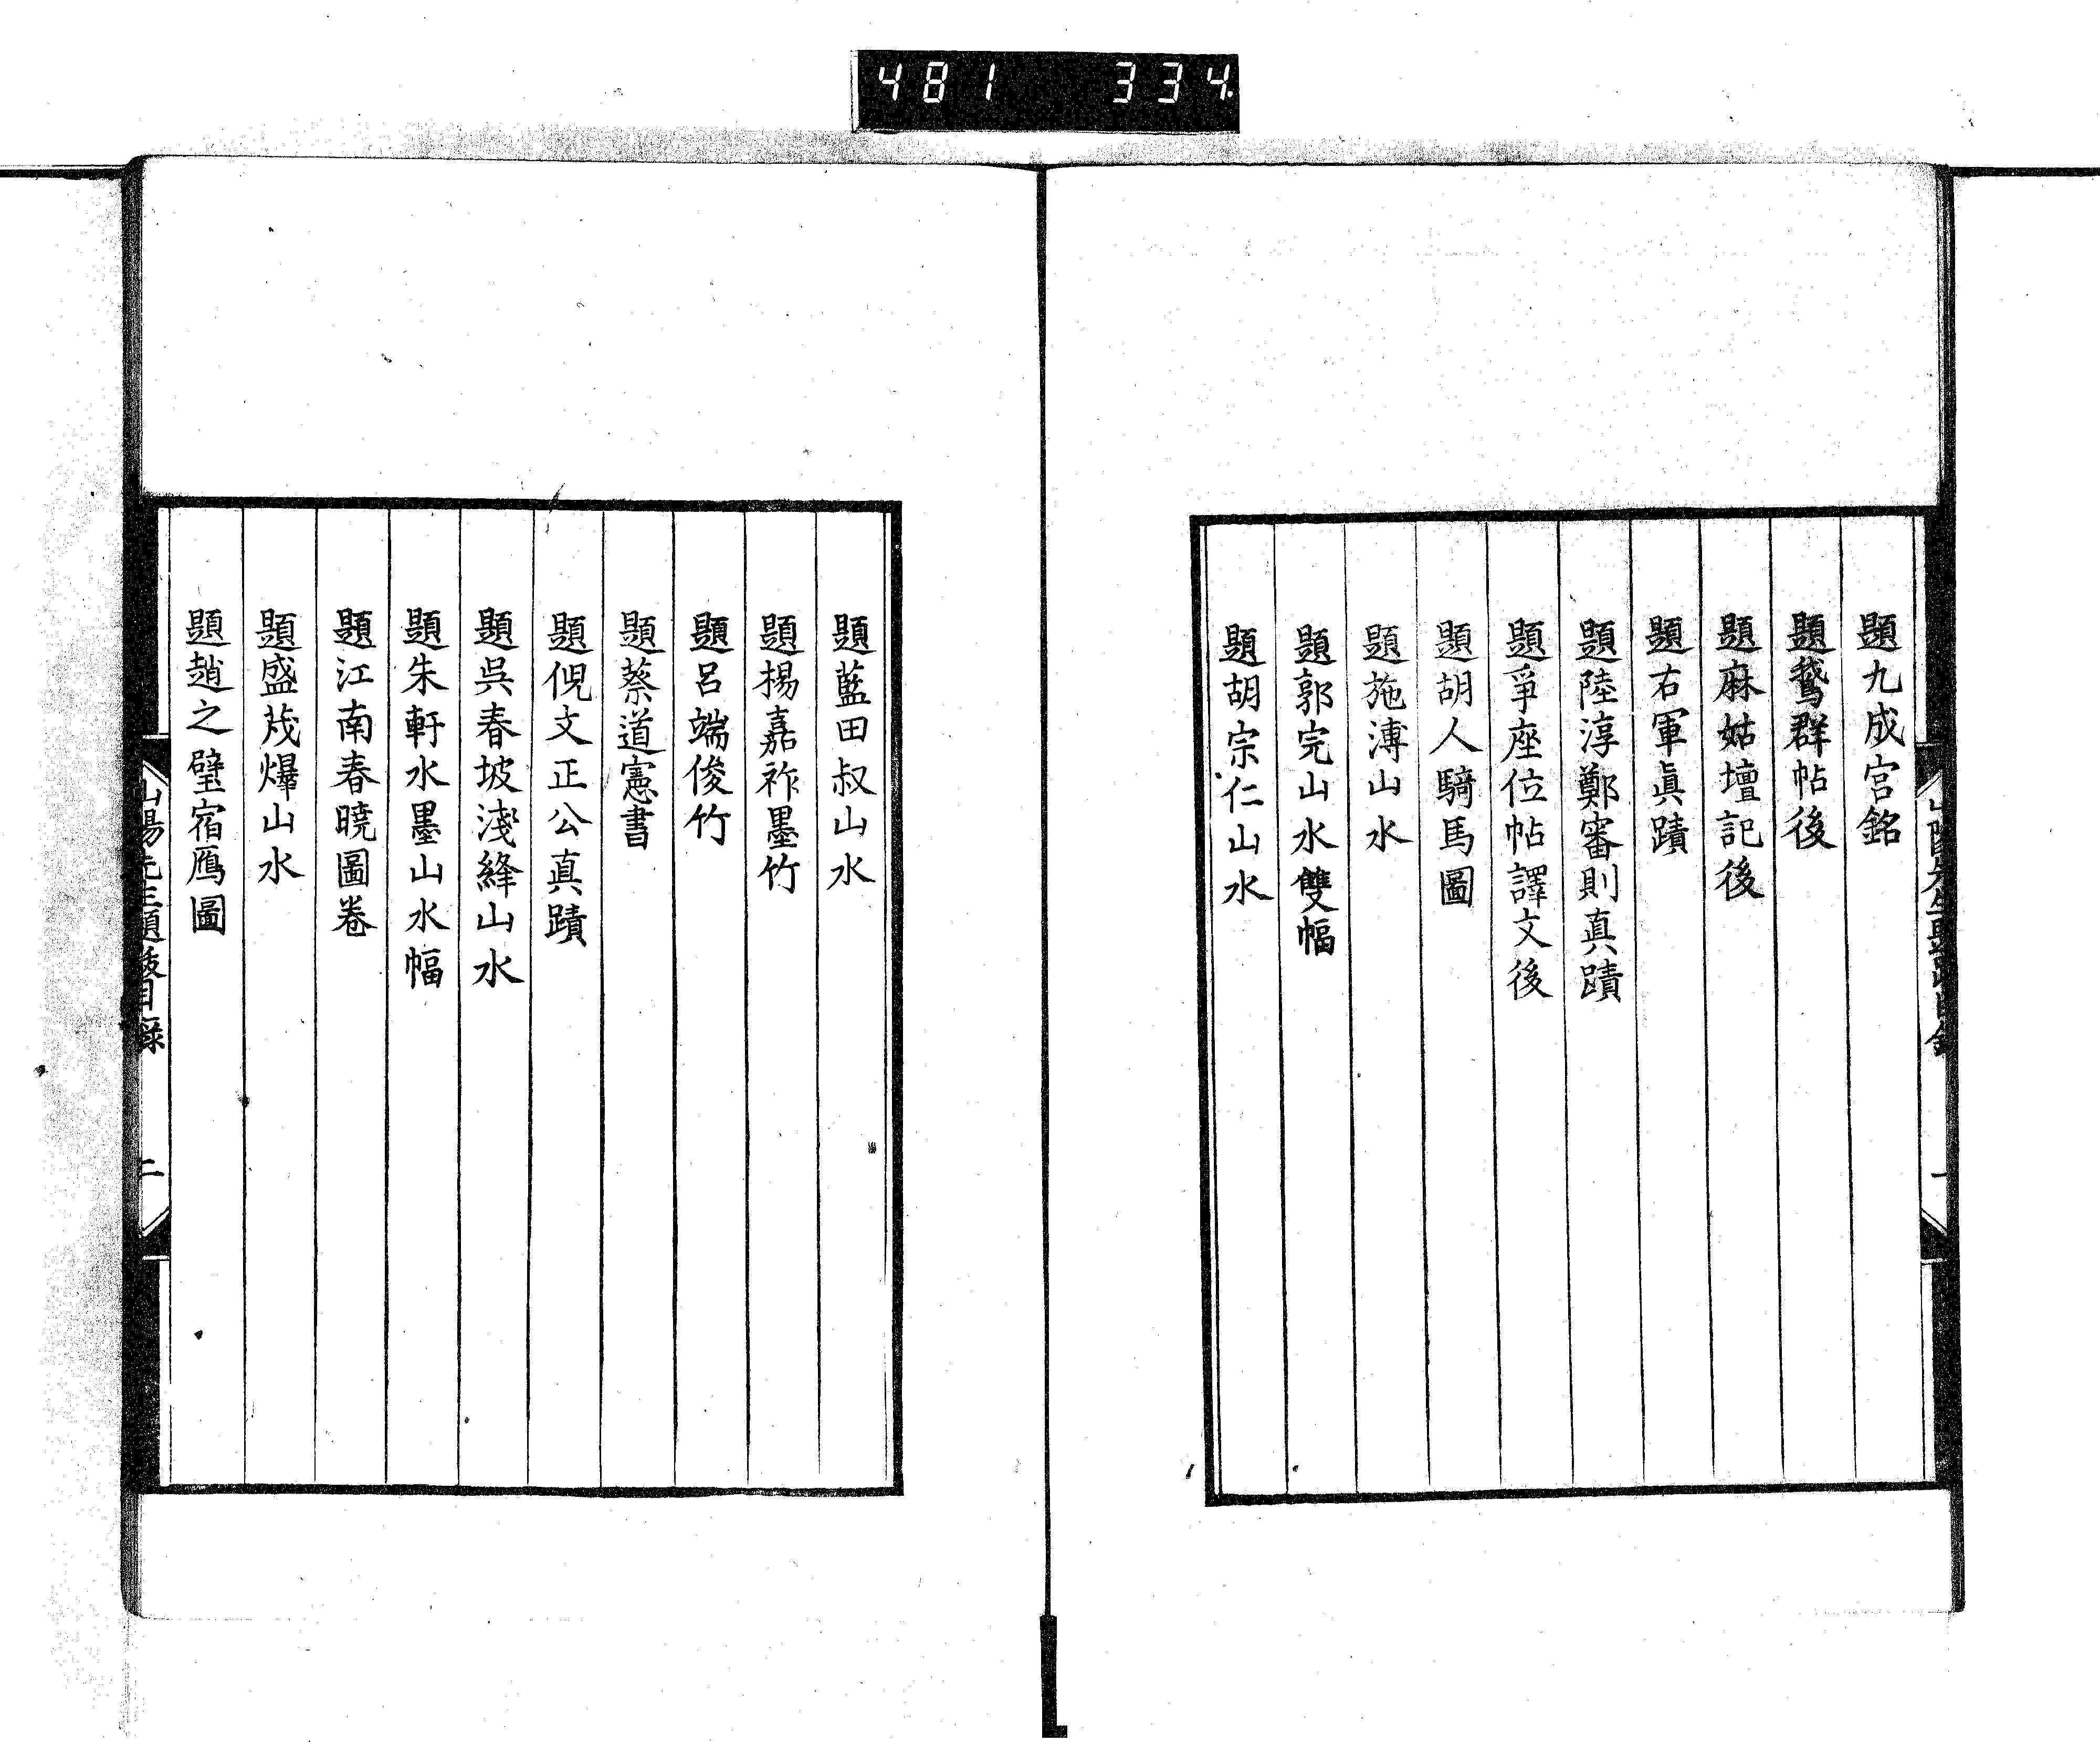 481 334
題九成宮銘
題鵞群帖後
題麻姑壇記後
題右軍眞蹟
題陸淳鄭審則真蹟
題爭座位帖譯文後
題胡人騎馬圖
題施溥山水
題郭完山水雙幅
題胡宗仁山水
一
題藍田叔山水
題楊嘉祚墨竹
題呂端俊竹
題蔡道憲書
題倪文正公真蹟
題吳春坡淺絳山水
題朱軒水墨山水幅
題江南春曉圖卷
題盛茂爗山水
題趙之璧宿鴈圖
山陽先生題跋目錄
二